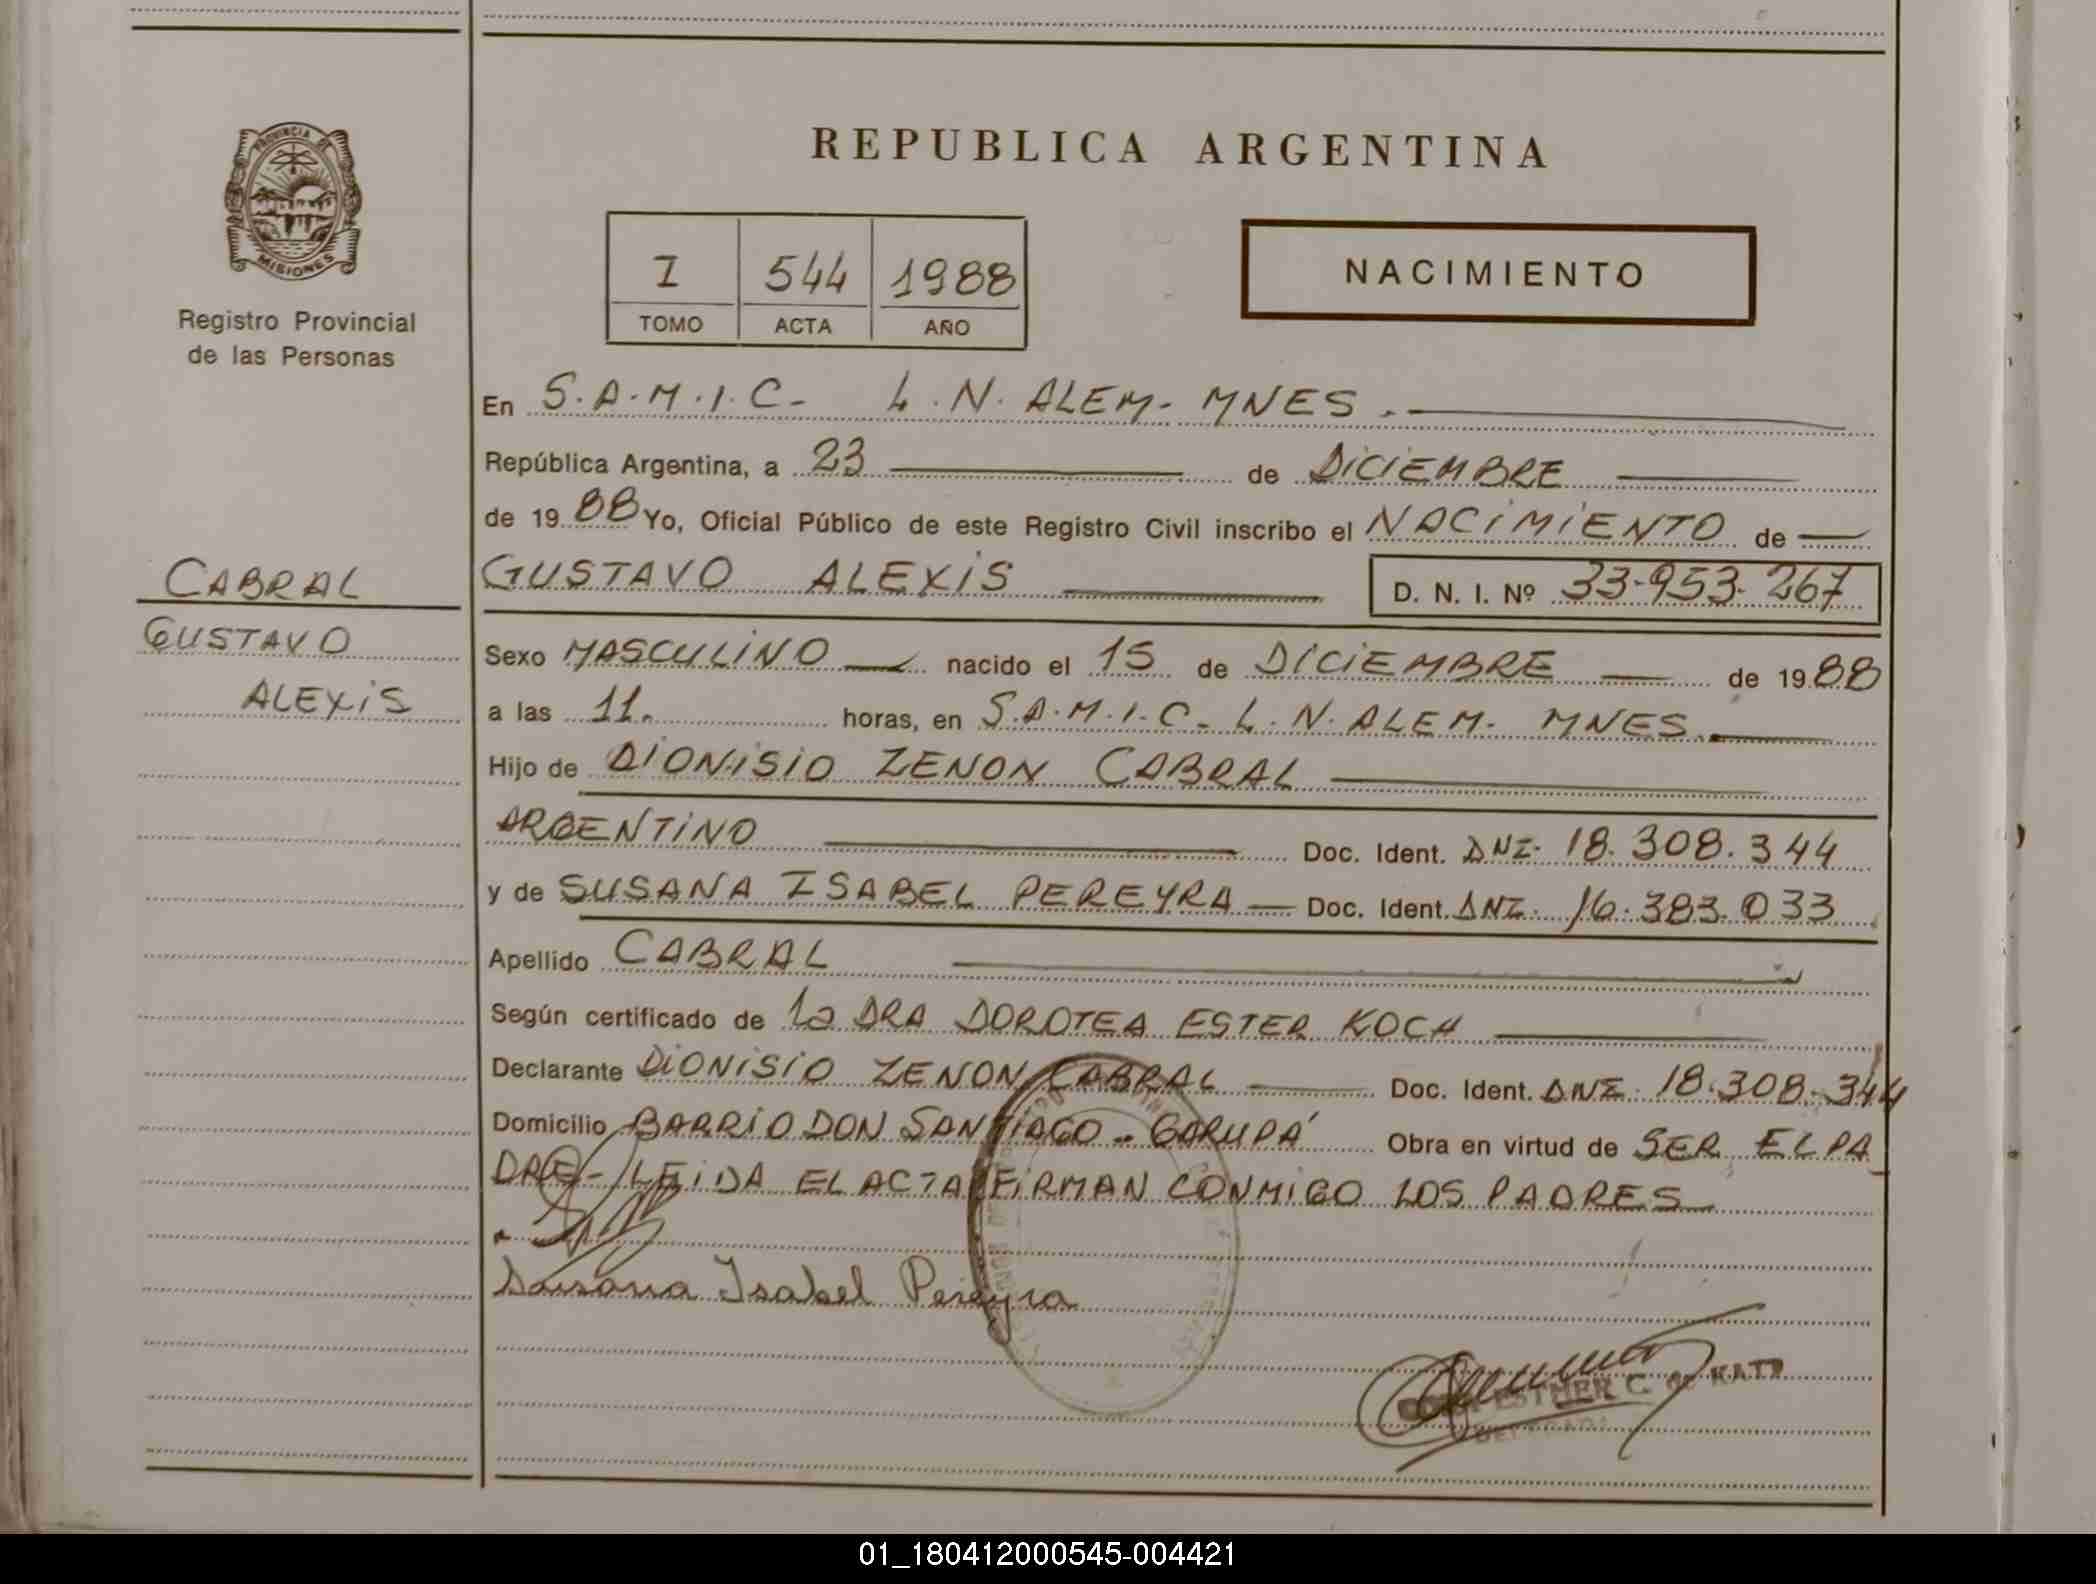 PROVINCIA DE
MISIONES
Registro Provincial
de las Personas
CABRAL
GUSTAVO
ALEXIS
REPUBLICA ARGENTINA
I 544 1988
TOMO ACTA AÑO
NACIMIENTO
En S.A.M.I.C- L.N. ALEM- MNES.-
República Argentina, a 23 de DICIEMBRE
de 1988 Yo, Oficial Público de este Registro Civil inscribo el NACIMIENTO de
GUSTAVO ALEXIS D. N. I. Nº 33-953-267
Sexo MASCULINO nacido el 15 de DICIEMBRE de 1988
a las 11. horas, en S.A.M.I.C- L.N. ALEM- MNES.
Hijo de DIONISIO ZENON CABRAL
ARGENTINO Doc. Ident. DNI- 18.308.344
y de SUSANA ISABEL PEREYRA Doc. Ident. DNI- 16.383.033
Apellido CABRAL
Según certificado de la DRA DOROTEA ESTER KOCH
Declarante DIONISIO ZENON CABRAL Doc. Ident. DNI- 18.308.344
Domicilio BARRIO DON SANTIAGO - GARUPÁ Obra en virtud de SER EL PA
DRE- LEIDA EL ACTA FIRMAN CONMIGO LOS PADRES
Susana Isabel Pereyra
ESTHER C. de
01_180412000545-004421